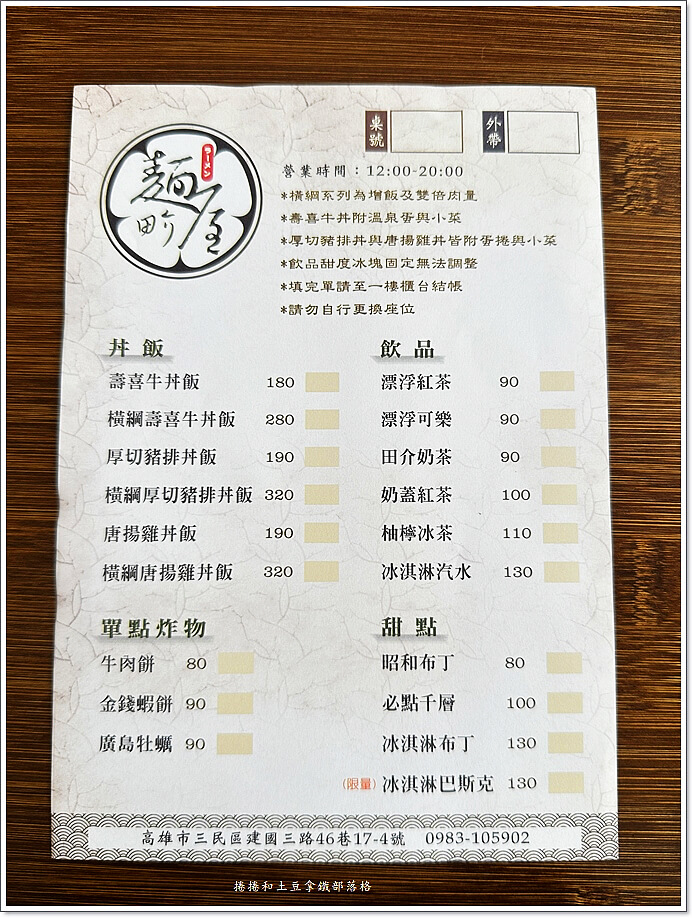 桌號
外帶
ラーメン
麵屋
町
營業時間：12:00-20:00
*橫綱系列為增飯及雙倍肉量
*壽喜牛丼附溫泉蛋與小菜
*厚切豬排丼與唐揚雞丼皆附蛋捲與小菜
*飲品甜度冰塊固定無法調整
*填完單請至一樓櫃台結帳
*請勿自行更換座位
丼飯
壽喜牛丼飯 180
橫綱壽喜牛丼飯 280
厚切豬排丼飯 190
橫綱厚切豬排丼飯 320
唐揚雞丼飯 190
橫綱唐揚雞丼飯 320
飲品
漂浮紅茶 90
漂浮可樂 90
田介奶茶 90
奶蓋紅茶 100
柚檸冰茶 110
冰淇淋汽水 130
單點炸物
牛肉餅 80
金錢蝦餅 90
廣島牡蠣 90
甜點
昭和布丁 80
必點千層 100
冰淇淋布丁 130
(限量) 冰淇淋巴斯克 130
高雄市三民區建國三路46巷17-4號 0983-105902
捲捲和土豆拿鐵部落格